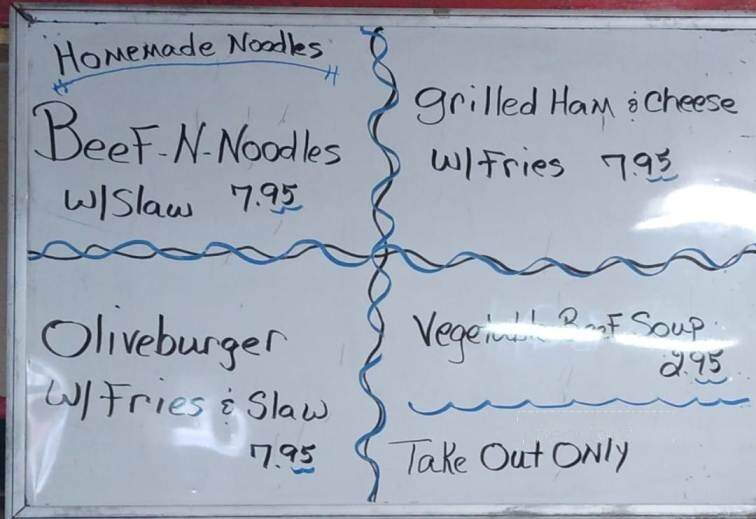 Homemade Noodles
Beef-N-Noodles
W/Slaw 7.95
Grilled Ham & Cheese
W/Fries 7.95
Oliveburger
W/Fries & Slaw
7.95
Vegetable Beef Soup
2.95
Take Out Only